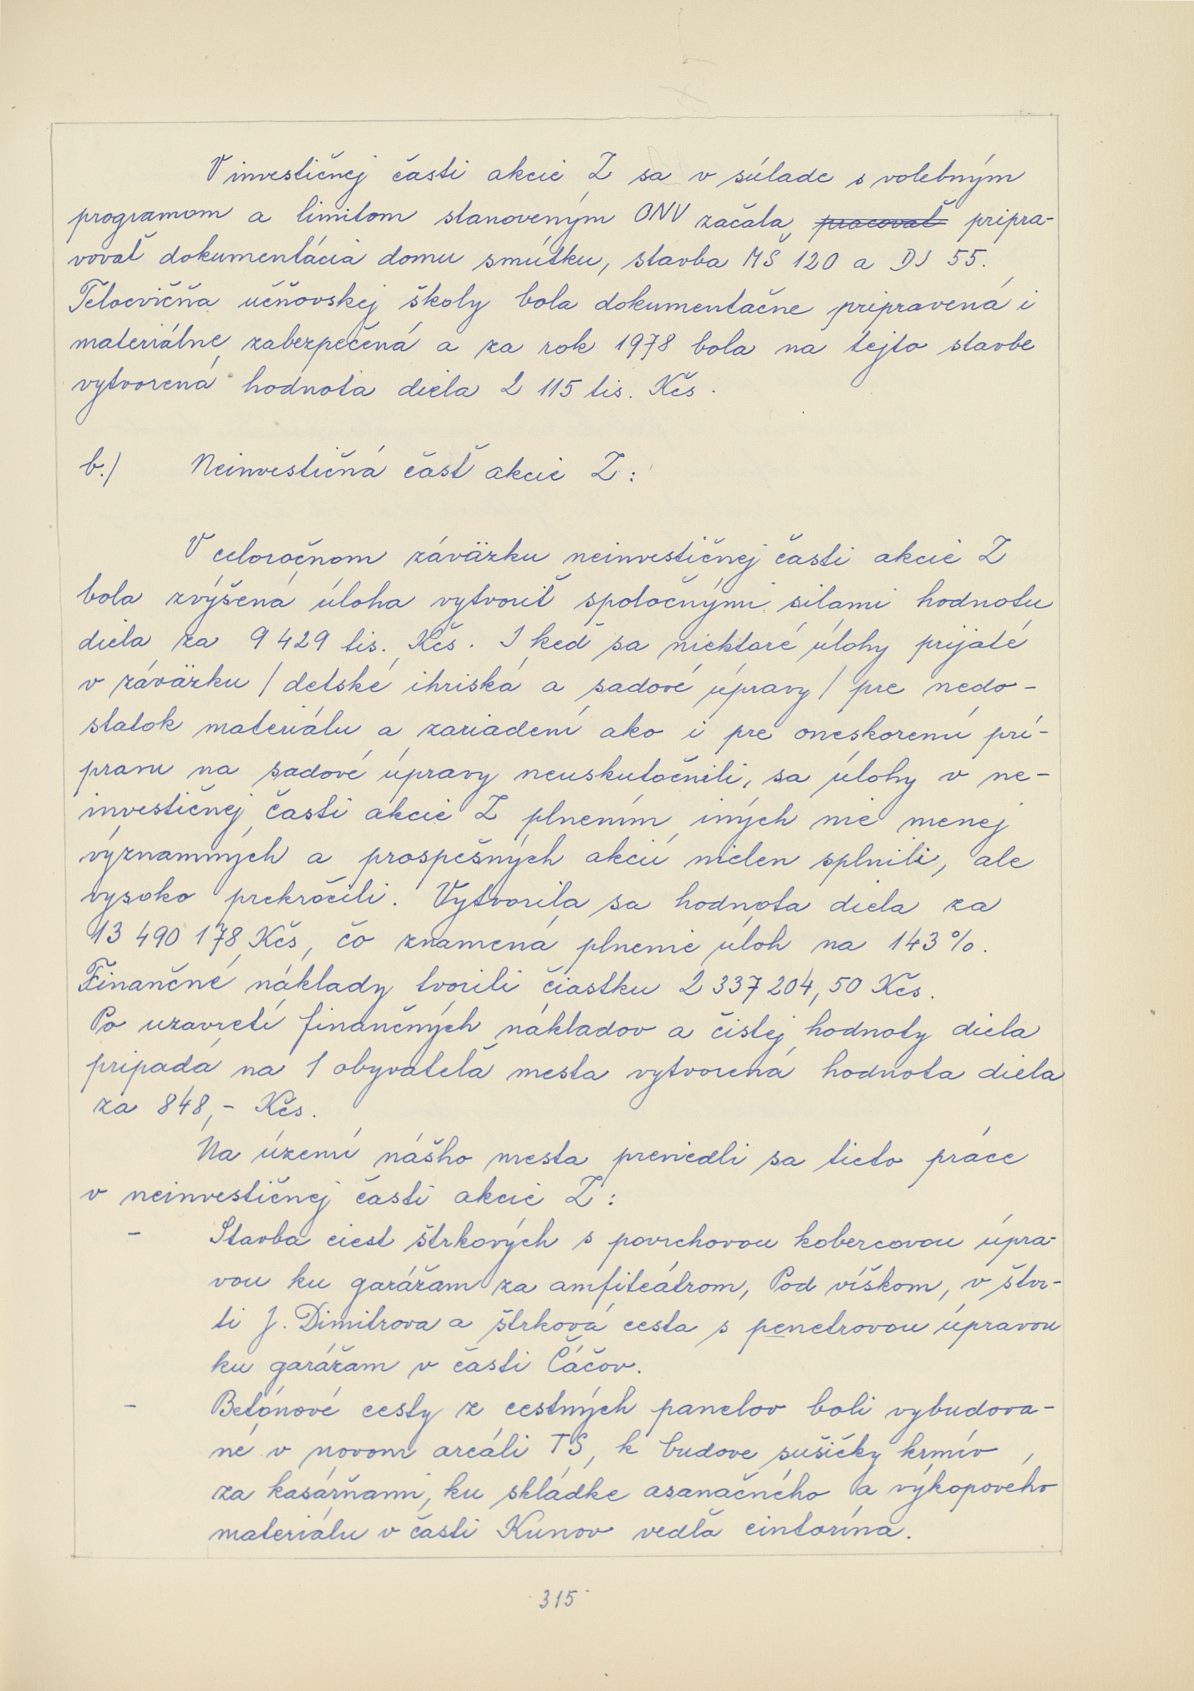 V investičnej časti akcie Z sa v súlade s volebným
programom a limitom stanoveným ONV začala ~~pracovať~~ pripra-
vovať dokumentácia domu smútku, stavba MŠ 120 a DJ 55.
Telocvičňa učňovskej školy bola dokumentačne pripravená i
materiálne zabezpečená a za rok 1978 bola na tejto stavbe
vytvorená hodnota diela 2 115 tis. Kčs.
b./ Neinvestičná časť akcie Z:
V celoročnom záväzku neinvestičnej časti akcie Z
bola zvýšená úloha vytvoriť spoločnými silami hodnotu
diela za 9 429 tis. Kčs. I keď sa niektoré úlohy prijaté
v záväzku / detské ihriská a sadové úpravy / pre nedo-
statok materiálu a zariadení ako i pre oneskorenú prí-
pravu na sadové úpravy neuskutočnili, sa úlohy v ne-
investičnej časti akcie Z plnením iných nie menej
významných a prospešných akcií nielen splnili, ale
vysoko prekročili. Vytvorila sa hodnota diela za
13 490 178 Kčs, čo znamená plnenie úloh na 143 %.
Finančné náklady tvorili čiastku 2 337 204,50 Kčs.
Po uzavretí finančných nákladov a čistej hodnoty diela
pripadá na 1 obyvateľa mesta vytvorená hodnota diela
za 848,- Kčs.
Na území nášho mesta previedli sa tieto práce
v neinvestičnej časti akcie Z:
- Stavba ciest štrkových s povrchovou kobercovou úpra-
vou ku garážam za amfiteátrom, Pod víškom, v štvr-
ti J. Dimitrova a štrková cesta s penetrovou úpravou
ku garážam v časti Čáčov.
- Betónové cesty z cestných panelov boli vybudova-
né v novom areáli TS, k budove sušičky krmív,
za kasárňami, ku skládke asanačného a výkopového
materiálu v časti Kunov vedľa cintorína.
315